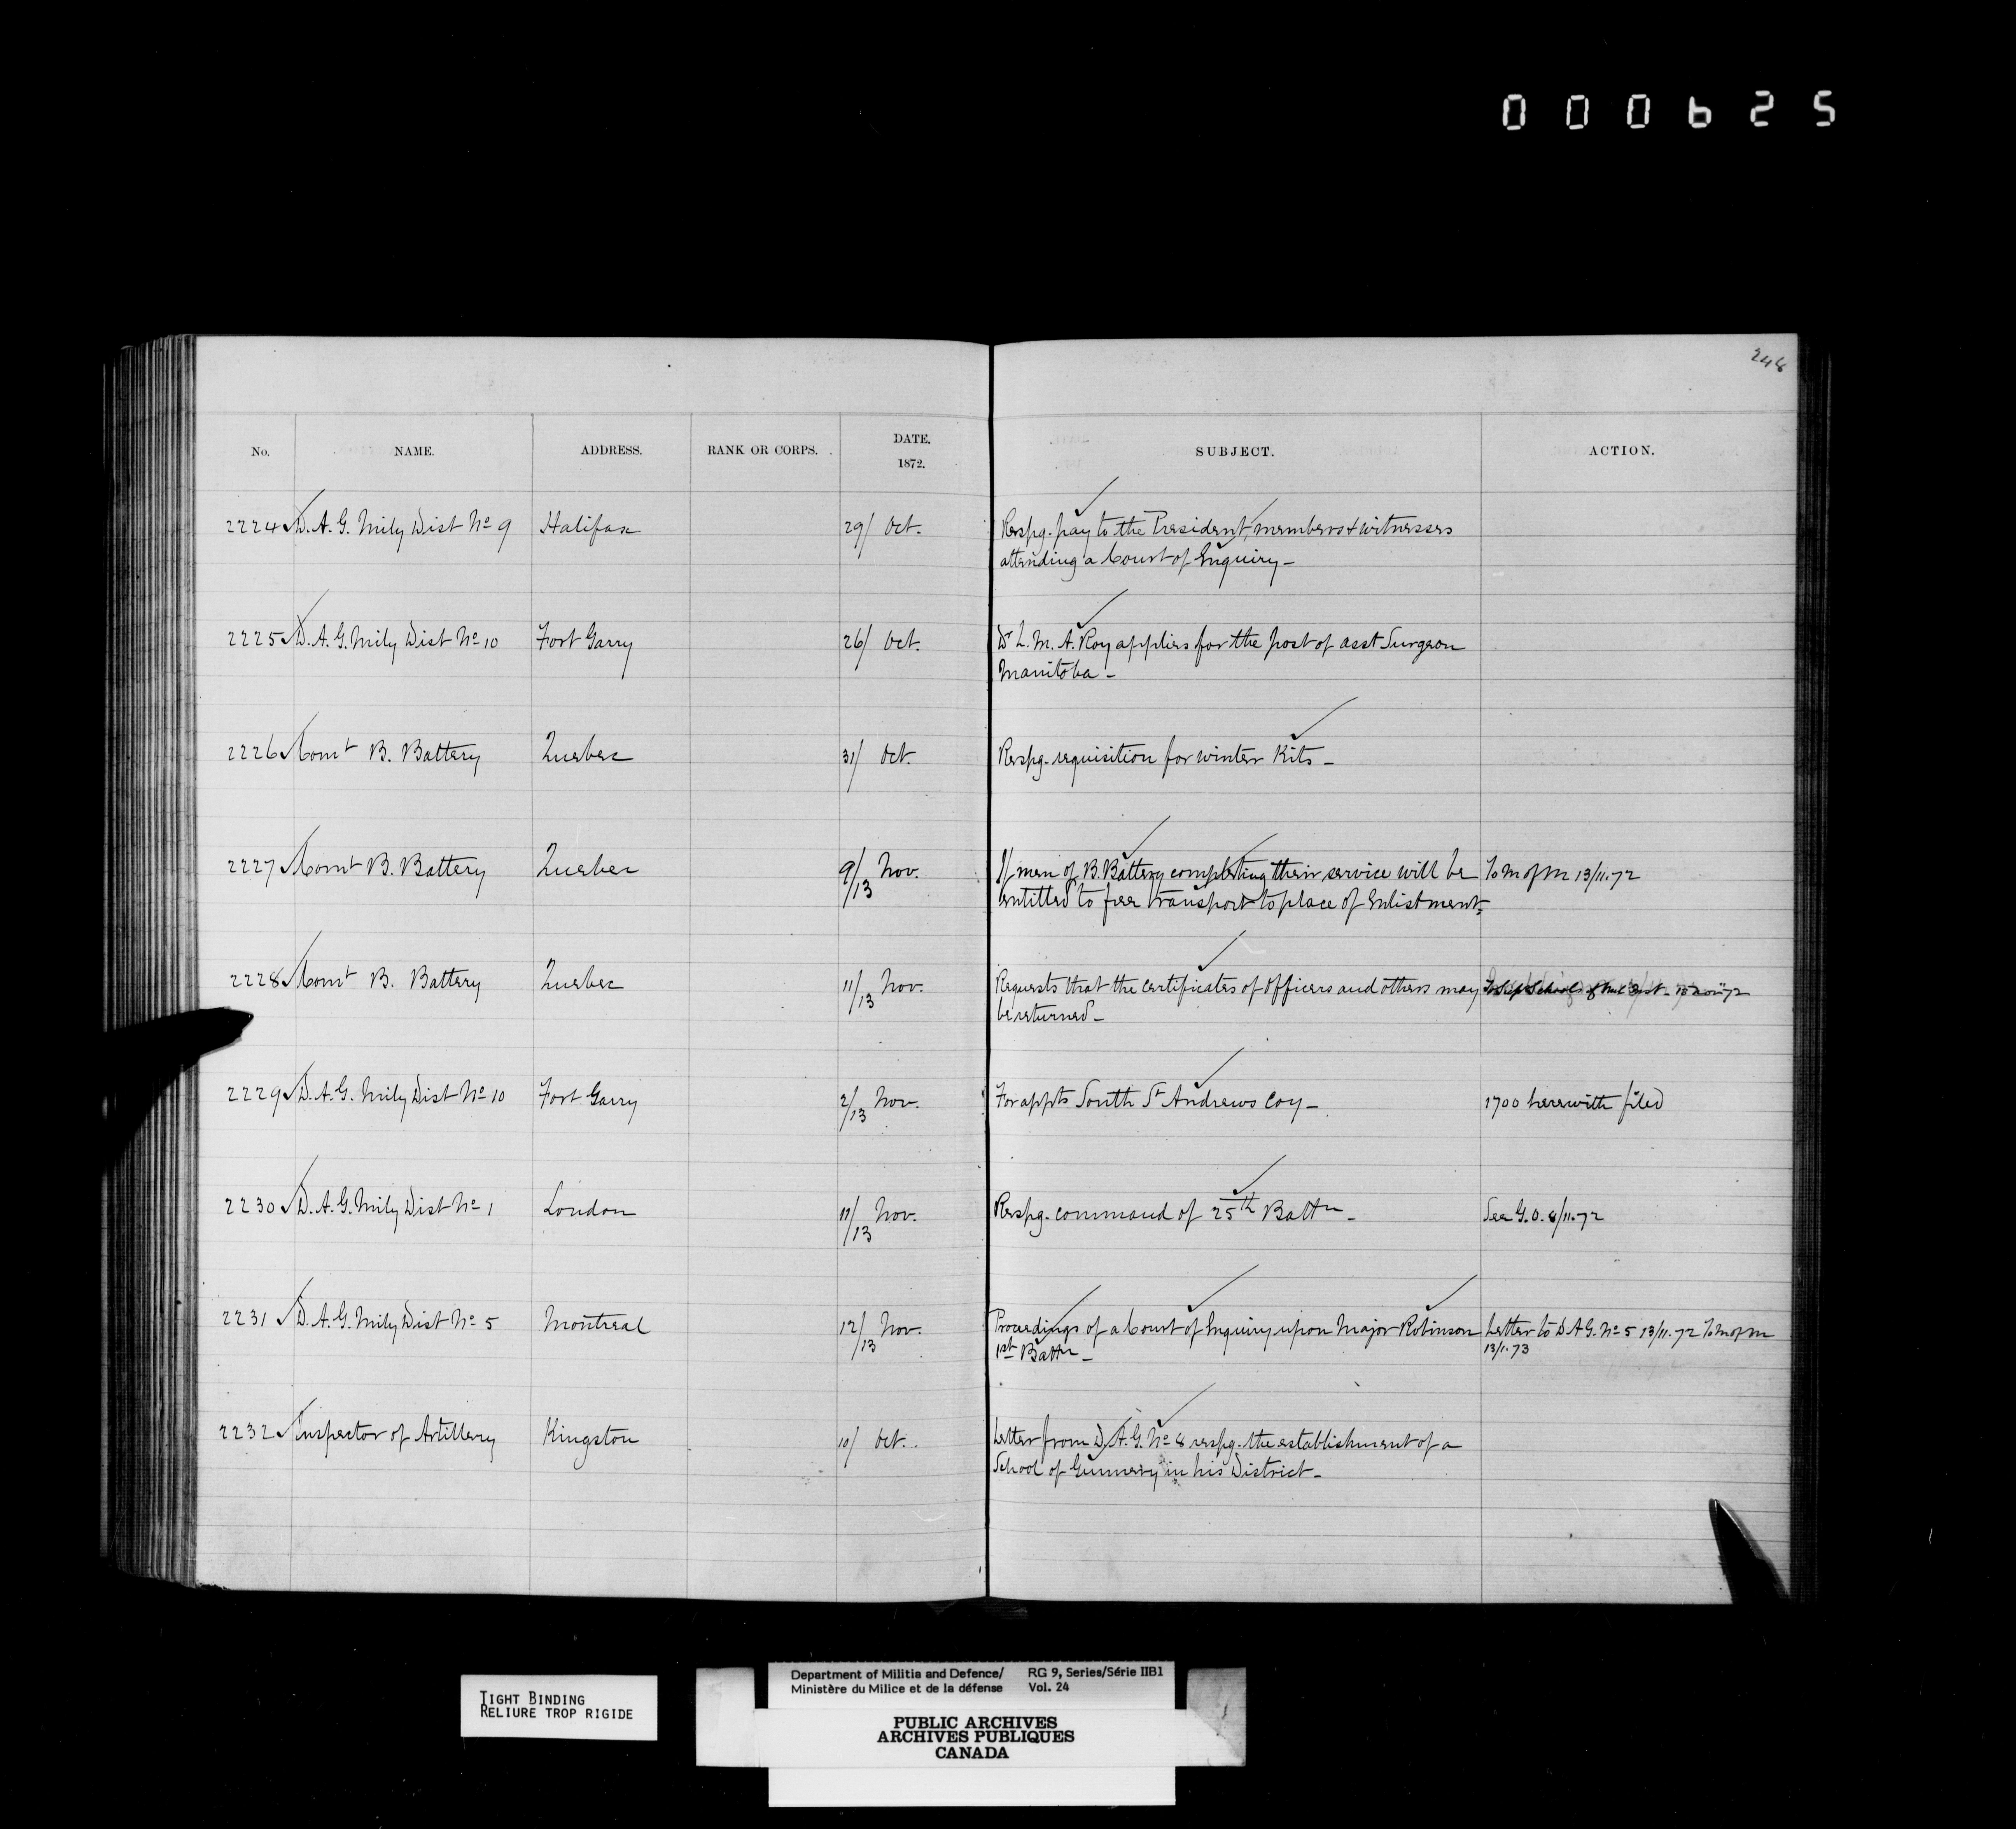 000625
248
No. NAME. ADDRESS. RANK OR CORPS. DATE. 1872. SUBJECT. ACTION.
2224 D. A. G. Mily Dist No 9 Halifax 29/ Oct. Respg. pay to the President, members & witnesses
attending a Court of Enquiry -
2225 D. A. G. Mily Dist No 10 Fort Garry 26/ Oct. Dr L. M. A. Roy applies for the post of asst Surgeon
Manitoba -
2226 Comt B. Battery Quebec 31/ Oct. Respg. requisition for winter Kits -
2227 Comt B. Battery Quebec 9/13 Nov. If men of B. Battery completing their service will be To M of M 13/11.72
entitled to free transport to place of Enlistment.
2228 Comt B. Battery Quebec 11/13 Nov. Requests that the certificates of Officers and others may
be returned -
2229 D. A. G. Mily Dist No 10 Fort Garry 2/13 Nov. For appts South St Andrews Coy - 1700 herewith filed
2230 D. A. G. Mily Dist No 1 London 11/13 Nov. Respg. command of 25th Battn - See G. O. 8/11.72
2231 D. A. G. Mily Dist No 5 Montreal 12/13 Nov. Proceedings of a Court of Inquiry upon Major Robinson Letter to D A G. No 5 13/11.72 To M of M
1st Battn - 13/1.73
2232 Inspector of Artillery Kingston 10/ Oct. Letter from D. A. G. No 8 respg. the establishment of a
School of Gunnery in his District -
TIGHT BINDING
RELIURE TROP RIGIDE
Department of Militia and Defence/ RG 9, Series/Série IIB1
Ministère du Milice et de la défense Vol. 24
PUBLIC ARCHIVES
ARCHIVES PUBLIQUES
CANADA